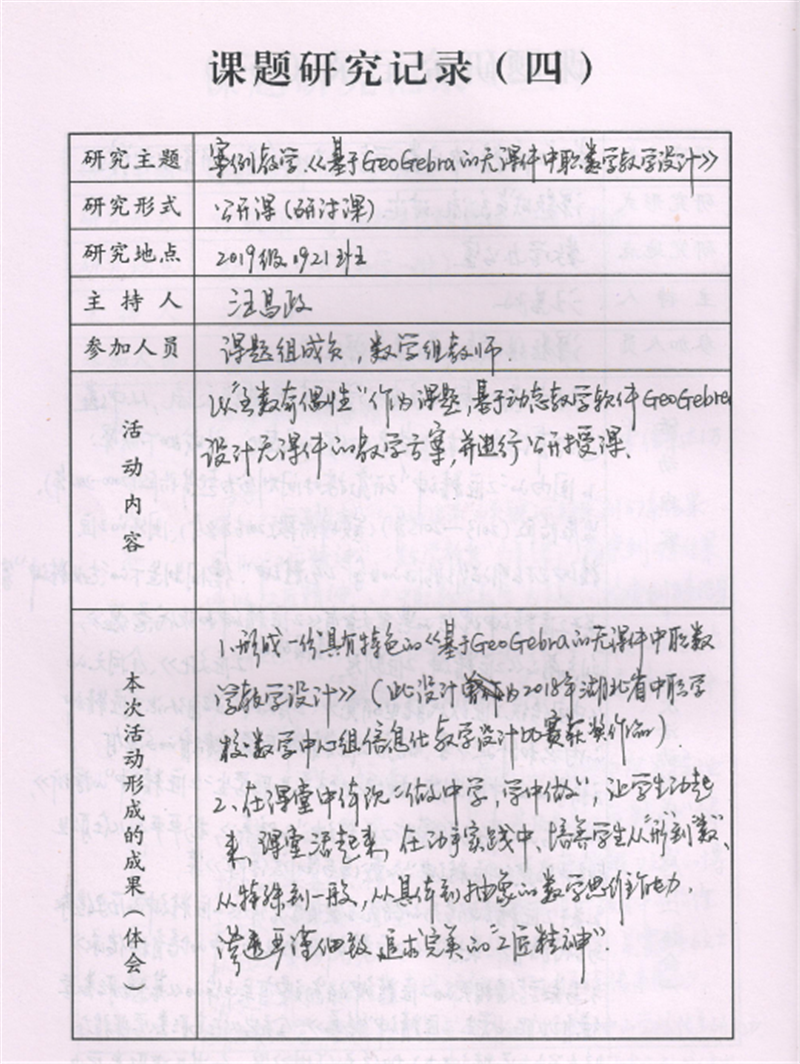 课题研究记录（四）
研究主题 案例教学《基于GeoGebra的无课件中职数学教学设计》
研究形式 公开课（研讨课）
研究地点 2019级1921班
主持人 汪昌政
参加人员 课题组成员，数学组教师.
活动内容
以"函数奇偶性"作为课题，基于动态教学软件GeoGebra
设计无课件的教学方案，并进行公开授课.
本次活动形成的成果（体会
1、形成一份具有特色的《基于GeoGebra的无课件中职数
学教学设计》（此设计为2018年湖北省中职学
校数学中心组信息化教学设计比赛获奖作品）.
2、在课堂中体现"做中学，学中做"，让学生动起
来，课堂活起来，在动手实践中，培养学生从"形到数"、
从特殊到一般，从具体到抽象的数学思维能力.
渗透严谨细致 追求完美的"工匠精神"